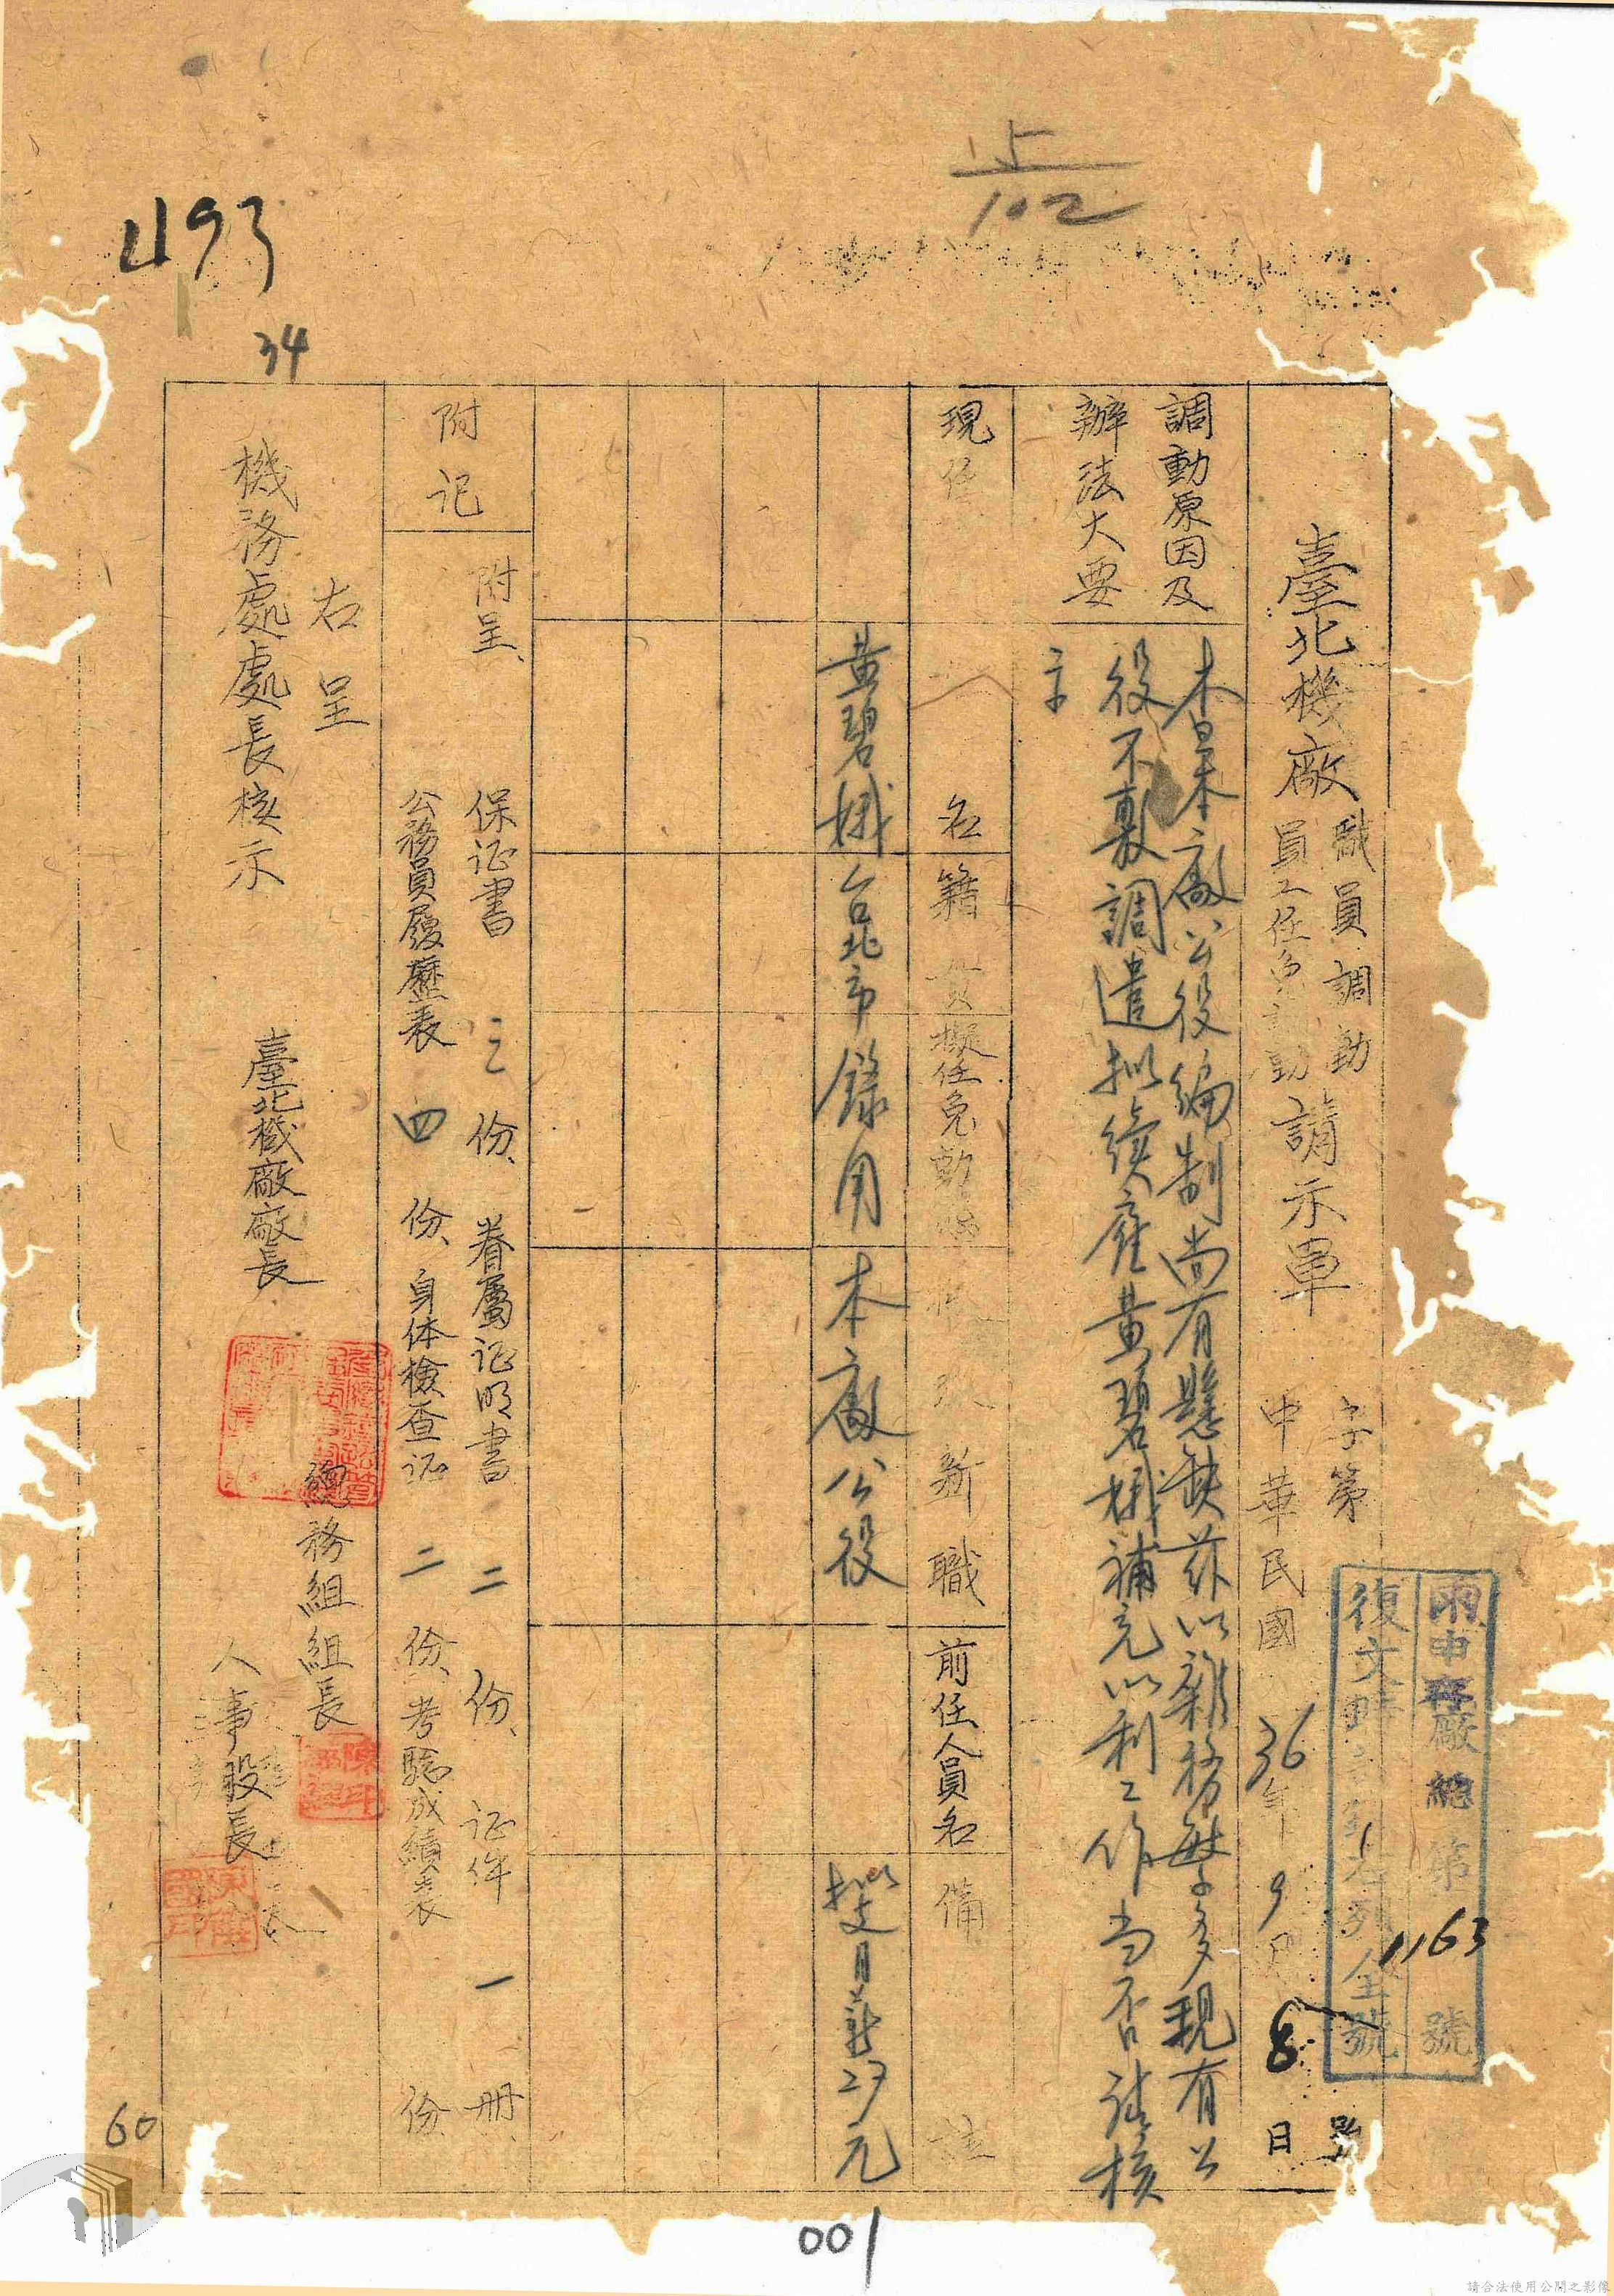 15
102
1193
34
臺北機廠
職員調動
員工任免調動
請示單
字第
號
中華民國36年9月8日
雨申
廠總第1163號
復文時
右列全號
調動原因及
辦法大要
本廠公役編制尚有懸缺茲以雜務繁多現有公
役不敷調遣拟續雇黃碧娥補充以利工作当否請核
示
現任
名
籍貫
擬任免動
新職
前任人員名
備註
黃碧娥
台北市
錄用
本廠公役
擬支月薪27元
附记
附呈、
保证書三份、眷屬证明書二份、证件一冊、
公務員履歷表四份、身体檢查证二份、考驗成績表份
右呈
機務處處長核示
臺北機廠廠長
總務組組長
人事股長
60
001
請合法使用公開之影像